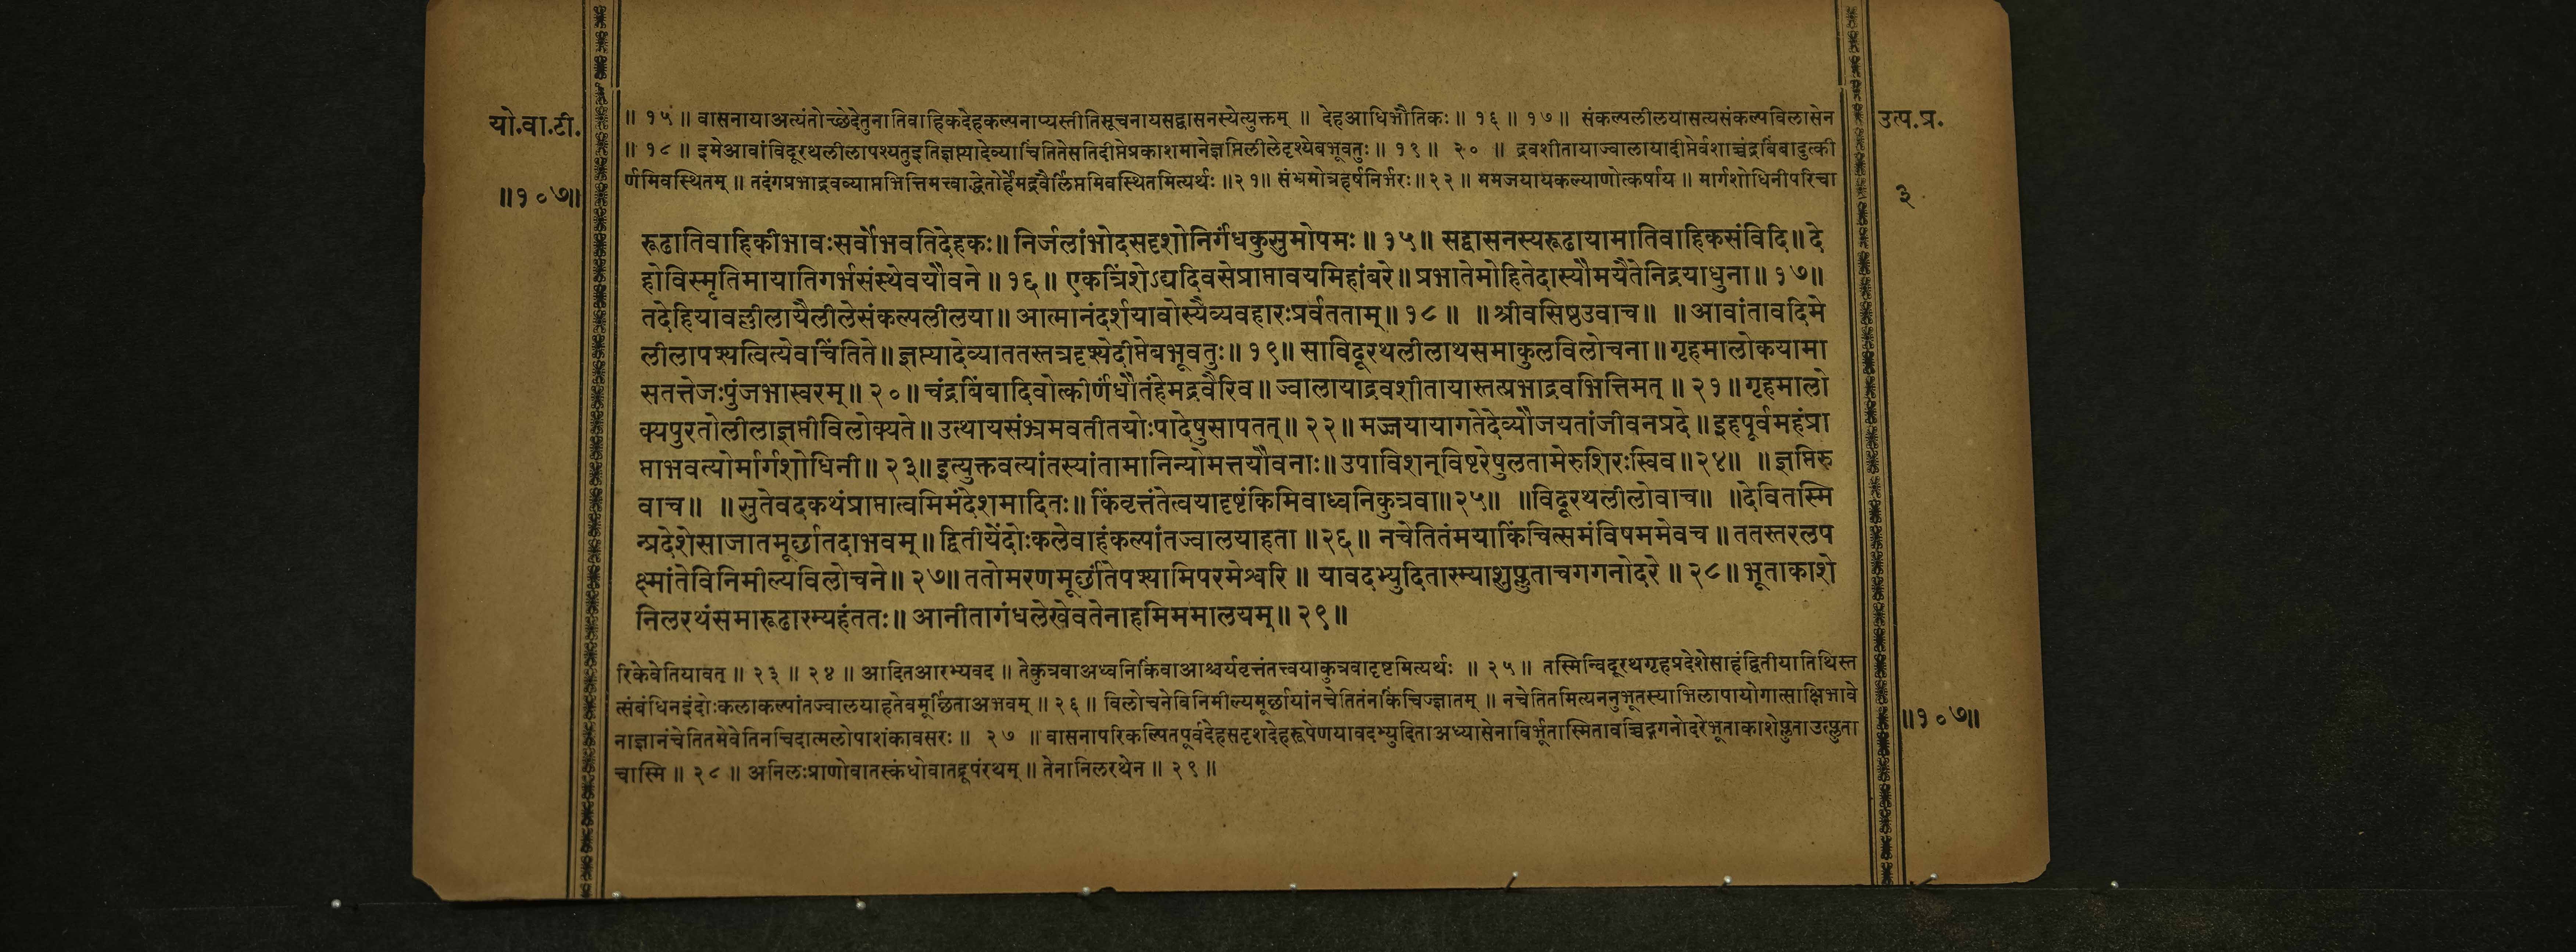 यो.वा.टी.
॥१०७॥
॥ १५ ॥ वासनायाअत्यंतोच्छेदेतुनातिवाहिकदेहकल्पनाप्यस्तीतिसूचनायसद्वासनस्येत्युक्तम् ॥ देहआधिभौतिकः ॥ १६ ॥ १७ ॥ संकल्पलीलयासत्यसंकल्पविलासेन
॥ १८ ॥ इमेआवांविदूरथलीलापश्यतुइतिज्ञप्त्यादेव्याचिंतितेसतिदीप्तेप्रकाशमानेज्ञप्तिलीलेदृश्येबभूवतुः ॥ १९ ॥ २० ॥ द्रवशीतायाज्वालायादीप्तेर्वशाच्चंद्रबिंबादुत्की
र्णमिवस्थितम् ॥ तदंगप्रभाद्रवव्याप्तभित्तिमत्त्वाद्धेतोर्हेमद्रवैर्लिप्तमिवस्थितमित्यर्थः ॥२१॥ संभ्रमोत्रहर्षनिर्भरः॥२२॥ ममजयायकल्याणोत्कर्षाय ॥ मार्गशोधिनीपरिचा
रूढातिवाहिकीभावःसर्वोभवतिदेहकः॥ निर्जलांभोदसदृशोनिर्गंधकुसुमोपमः ॥ १५॥ सद्वासनस्यरूढायामातिवाहिकसंविदि॥ दे
होविस्मृतिमायातिगर्भसंस्थेवयौवने ॥ १६॥ एकत्रिंशेऽद्यदिवसेप्राप्तावयमिहांबरे॥ प्रभातेमोहितेदास्यौमयैतेनिद्रयाधुना॥ १७॥
तदेहियावल्लीलायैलीलेसंकल्पलीलया॥ आत्मानंदर्शयावोस्यैव्यवहारःप्रवर्ततताम्॥ १८॥ ॥ श्रीवसिष्ठउवाच॥ ॥ आवांतावदिमे
लीलापश्यत्वित्येवचिंतिते॥ ज्ञप्त्यादेव्याततस्तत्रदृश्येदीप्तेबभूवतुः॥ १९॥ साविदूरथलीलाथसमाकुलविलोचना॥ गृहमालोकयामा
सतत्तेजःपुंजभास्वरम्॥ २०॥ चंद्रबिंबादिवोत्कीर्णंधौतंहेमद्रवैरिव॥ ज्वालायाद्रवशीतायास्तत्प्रभाद्रवभित्तिमत् ॥ २१॥ गृहमालो
क्यपुरतोलीलाज्ञप्तीविलोक्यते॥ उत्थायसंभ्रमवतीतयोःपादेषुसापतत्॥ २२॥ मज्जयायागतेदेव्यौजयतांजीवनप्रदे॥ इहपूर्वमहंप्रा
प्ताभवत्योर्मार्गशोधिनी॥ २३॥ इत्युक्तवत्यांतस्यांतामानिन्योमत्तयौवनाः॥ उपाविशन्विष्टरेषुलतामेरुशिरःस्विव॥२४॥ ॥ ज्ञप्तिरु
वाच॥ ॥ सुतेवदकथंप्राप्तात्वमिमंदेशमादितः॥ किंवृत्तंतेत्वयादृष्टंकिमिवाध्वनिकुत्रवा॥२५॥ ॥विदूरथलीलोवाच॥ ॥देवितस्मि
न्प्रदेशेसाजातमूर्छातदाभवम्॥ द्वितीयेंदोःकलेवाहंकल्पांतज्वालयाहता॥२६॥ नचेतितंमयाकिंचित्समंविषममेवच॥ ततस्तरलप
क्ष्मांतेविनिमील्यविलोचने॥ २७॥ ततोमरणमूर्छांतेपश्यामिपरमेश्वरि॥ यावदभ्युदितास्म्याशुप्लुताचगगनोदरे॥ २८॥ भूताकाशे
निलरथंसमारूढास्म्यहंततः॥ आनीतागंधलेखेवतेनाहमिममालयम्॥ २९॥
रिकेवेतियावत् ॥ २३ ॥ २४ ॥ आदितआरभ्यवद ॥ तेकुत्रवाअध्वनिकिंवाआश्चर्यवृत्तंतत्त्वयाकुत्रवादृष्टमित्यर्थः ॥ २५ ॥ तस्मिन्विदूरथगृहप्रदेशेसाहंद्वितीयातिथिस्त
त्संबंधिनइंदोःकलाकल्पांतज्वालयाहतेवमूर्छिताअभवम् ॥ २६ ॥ विलोचनेविनिमील्यमूर्छायांनचेतितंनकिंचिज्ज्ञातम् ॥ नचेतितमित्यननुभूतस्याभिलापायोगात्साक्षिभावे
नाज्ञानंचेतितमेवेतिनचिदात्मलोपाशंकावसरः ॥ २७ ॥ वासनापरिकल्पितपूर्वदेहसदृशदेहरूपेणयावदभ्युदिताअध्यासेनाविर्भूतास्मितावच्चिद्गगनोदरेभूताकाशेप्लुताउत्प्लुता
चास्मि ॥ २८ ॥ अनिलःप्राणोवातस्कंधोवातद्रूपंरथम् ॥ तेनानिलरथेन ॥ २९ ॥
उत्प.प्र.
३
॥१०७॥